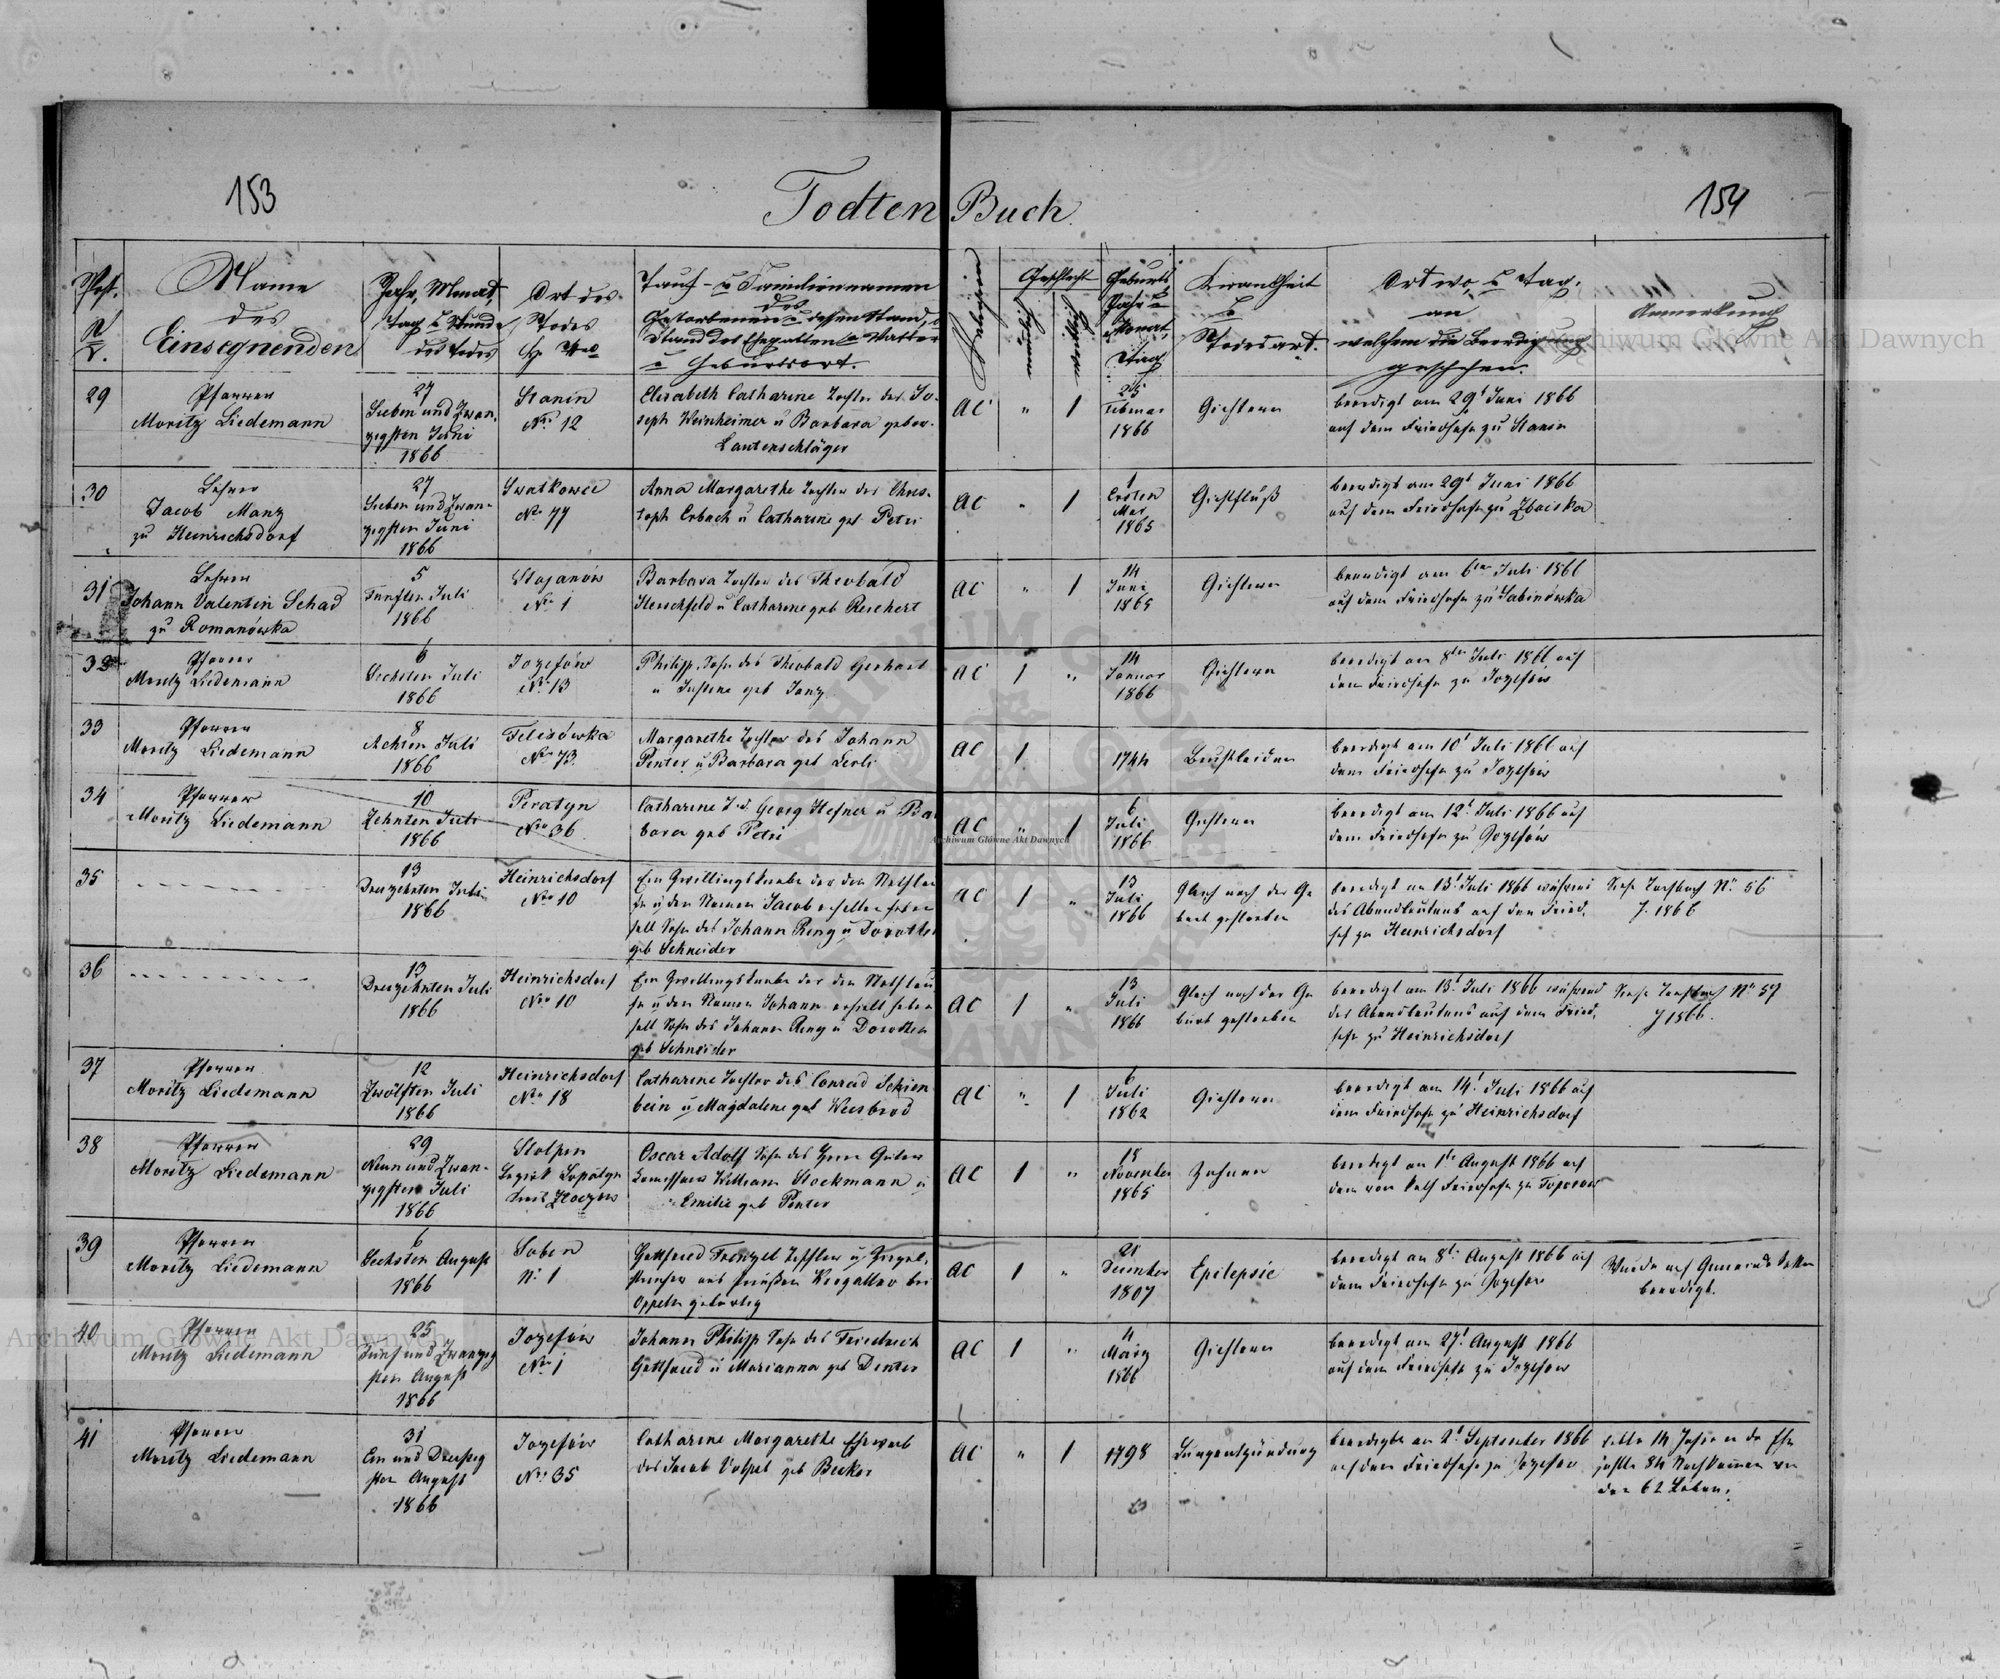 153
154
Todten Buch
Post. Nr.
Name
des
Einsegnenden
Jahr, Monat,
Tag u Stunde
des Todes
Ort des
Todes
Tauf- u Familiennamen
des
Gestorbenen u dessen Stand,
Stand des Ehegatten u Vatter
u Geburtsort.
Geschlecht
Geburts
Jahr u
Monat,
Tag
Krankheit
u
Todesart.
Ort wo, u Tag,
an
welchem die Beerdigung
geschehen.
Anmerkung
29
Pfarrer
Moritz Liedemann
27
Sieben und Zwan-
zigsten Juni
1866
Stanin
Nro 12
Elisabeth Catharine Tochter des Jo-
seph Weinheimer u Barbara gebor.
Lautenschläger
AC " 1
25
Februar
1866
Gichtern
beerdigt am 29t Juni 1866
auf dem Friedhofe zu Stanin
30
Lehrer
Jacob Manz
zu Heinrichsdorf
27
Sieben und Zwan-
zigsten Juni
1866
Swatkowce
No 77
Anna Margarethe Tochter des Chris-
toph Erbach u Catharine geb Petri
AC " 1
1
Ersten
Mai
1865
Gichtfluß
beerdigt am 29t Juni 1866
auf dem Friedhofe zu
31
Lehrer
Johann Valentin Schad
zu Romanówka
5
Fünften Juli
1866
Stojanów
Nro 1
Barbara Tochter des Theobald
Herschfeld u Catharine geb Reichert
AC " 1
14
Juni
1865
Gichtern
beerdigt am 6ten Juli 1866
auf dem Friedhofe zu Sabinówka
32
Pfarrer
Moritz Liedemann
6
Sechsten Juli
1866
Jozefów
Nro 13
Philipp, Sohn des Theobald Gerhart
u Justine geb Janz
AC 1 "
14
Januar
1866
Gichtern
beerdigt am 8ten Juli 1866 auf
dem Friedhofe zu Jozefów
33
Pfarrer
Moritz Liedemann
8
Achten Juli
1866
Felisówka
No 73
Margarethe Tochter des Johann
Penter u Barbara geb
AC 1
1744
Brustleiden
beerdigt am 10t Juli 1866 auf
dem Friedhofe zu Jozefów
34
Pfarrer
Moritz Liedemann
10
Zehnten Juli
1866
Peratyn
Nro 36
Catharine T. d. Georg Hefner u Bar
bara geb Petri
AC " 1
6
Juli
1866
Gichtern
beerdigt am 12t Juli 1866 auf
dem Friedhofe zu Jozefów
35
13
Dreizehnten Juli
1866
Heinrichsdorf
Nro 10
Ein Zwillingsknabe der die Nothtau
fe u den Namen Jacob erhalten haben
soll Sohn des Johann Ring u Dorothea
geb Schneider
AC 1 "
13
Juli
1866
Gleich nach der Ge
burt gestorben
beerdigt am 13t Juli 1866 während
des Abendläutens auf dem Fried.
hof zu Heinrichsdorf
Siehe Taufbuch No 56
J. 1866
36
13
Dreizehnten Juli
1866
Heinrichsdorf
Nro 10
Ein Zwillingsknabe der die Nothtau
fe u den Namen Johann erhalten haben
soll Sohn des Johann Ring u Dorothea
geb Schneider
AC 1 "
13
Juli
1866
Gleich nach der Ge
burt gestorben
beerdigt am 13t Juli 1866 während
des Abendläutens auf dem Fried.
hofe zu Heinrichsdorf
Siehe Taufbuch No 57
J 1866.
37
Pfarrer
Moritz Liedemann
12
Zwölften Juli
1866
Heinrichsdorf
Nro 18
Catharine Tochter des Conrad Schien
bein u Magdalene geb Weisbrod
AC " 1
6
Juli
1862
Gichtern
beerdigt am 14t Juli 1866 auf
dem Friedhofe zu Heinrichsdorf
38
Pfarrer
Moritz Liedemann
29
Neun und Zwan-
zigsten Juli
1866
Stolpin
Bezirk Lopatyn
Kreis Zloczow
Oscar Adolf Sohn des Herrn Güter
William Stockmann u
Emilie geb Penter
AC 1 "
18
November
1865
Zahnen
beerdigt am 1ten August 1866 auf
dem röm kath Friedhofe zu Toporow
39
Pfarrer
Moritz Liedemann
6
Sechsten August
1866
N. 1
Gottfried Frenzel Tischler u Ziegel-
aus Preußen bei
Oppeln gebürtig
AC 1 "
21
Dezember
1807
Epilepsie
beerdigt am 8t August 1866 auf
dem Friedhofe zu Jozefów
Wurde auf Gemeinde Kosten
beerdigt.
40
Pfarrer
Moritz Liedemann
25
Fünf und Zwanzig
sten August
1866
Jozefów
Nro 1
Johann Philipp Sohn des Friedrich
Gottfried u Marianna geb Denter
AC 1 "
4
März
1866
Gichtern
beerdigt am 27t August 1866
auf dem Friedhofe zu Jozefów
41
Pfarrer
Moritz Liedemann
31
Ein und Dreißig
sten August
1866
Jozefów
Nro 35
Catharine Margarethe Eheweib
des Jacob Volpel geb Becker
AC " 1
1798
Lungenentzündung
beerdigt am 2t September 1866
auf dem Friedhofe zu Jozefów
lebte 14 Jahre in der Ehe
zählte 84 Nachkommen von
den 62 Leben.
Archiwum Główne Akt Dawnych
Archiwum Główne Akt Dawnych
Archiwum Główne Akt Dawnych
ARCHIWUM GŁÓWNE AKT DAWNYCH